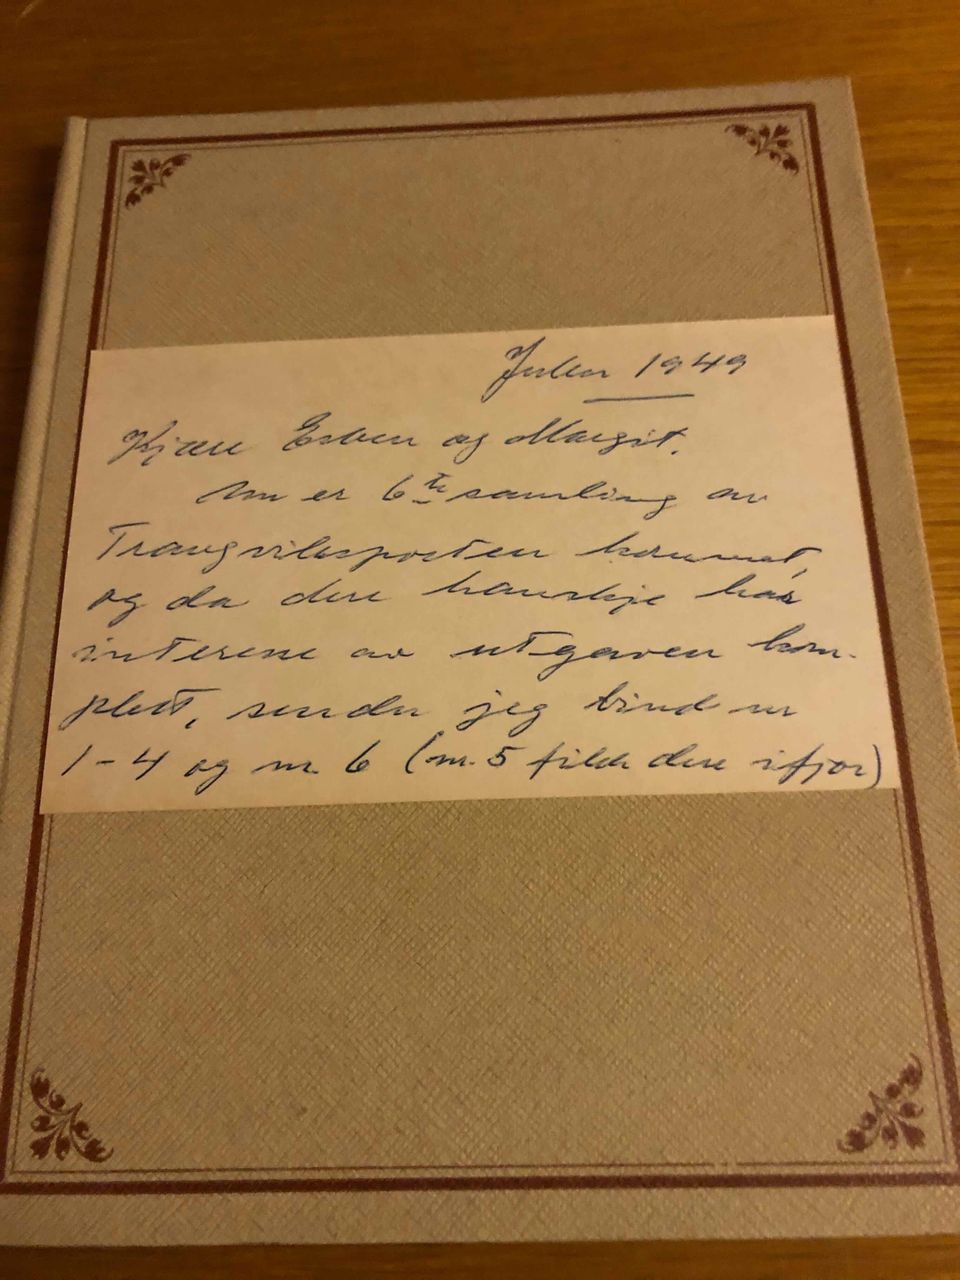 Julen 1949
Kjære Esben og Margit.
Nu er 6te samling av
Trangviksposten kommet,
og da dere kanskje har
interesse av utgaven kom-
plett, sender jeg bind nr
1-4 og nr. 6 (nr. 5 fikk dere ifjor)